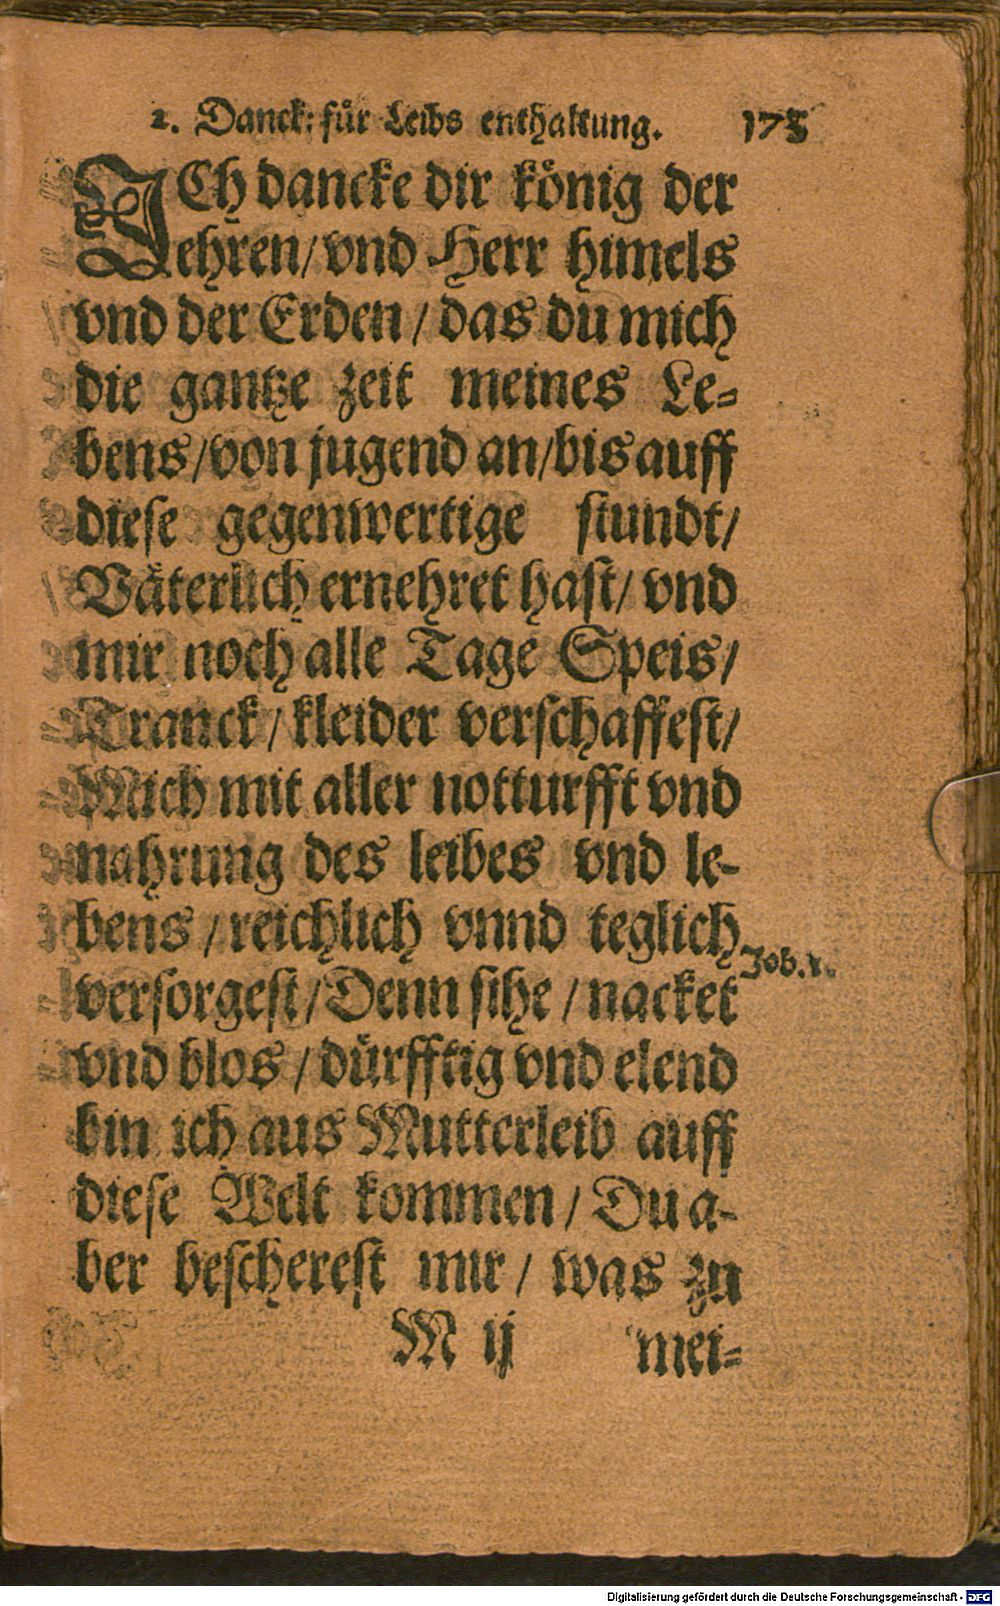 2. Danck: für Leibs enthaltung. 175
ICh dancke dir könig der
ehren/ vnd Herr himels
vnd der Erden / das du mich
die gantze zeit meines Le-
bens/von jugend an/bis auff
diese gegenwertige stundt/
Väterlich ernehret hast/ vnd
mir noch alle Tage Speis/
Tranck/ kleider verschaffest/
Mich mit aller notturfft vnd
nahrung des leibes vnd le-
bens / reichlich vnnd teglich
Job. 1.
versorgest/ Denn sihe / nacket
vnd blos / dürfftig vnd elend
bin ich aus Mutterleib auff
diese Welt kommen/ Du a-
ber bescherest mir/ was zu
M ij mei-
Digitalisierung gefördert durch die Deutsche Forschungsgemeinschaft - DFG